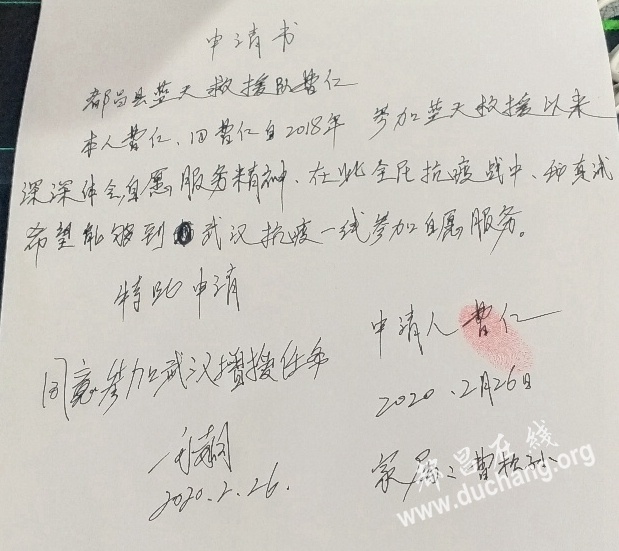 申请书
都昌县蓝天救援队曹仁
本人曹仁、旧曹仁自2018年 参加蓝天救援以来
深深体会自愿服务精神、在此全民抗疫战中、我真诚
希望能够到武汉抗疫一线参加自愿服务。
特此申请
申请人曹仁
2020.2月26日
同意参加武汉增援任务
2020.2.26.
家属:曹
都昌在线
www.duchang.org